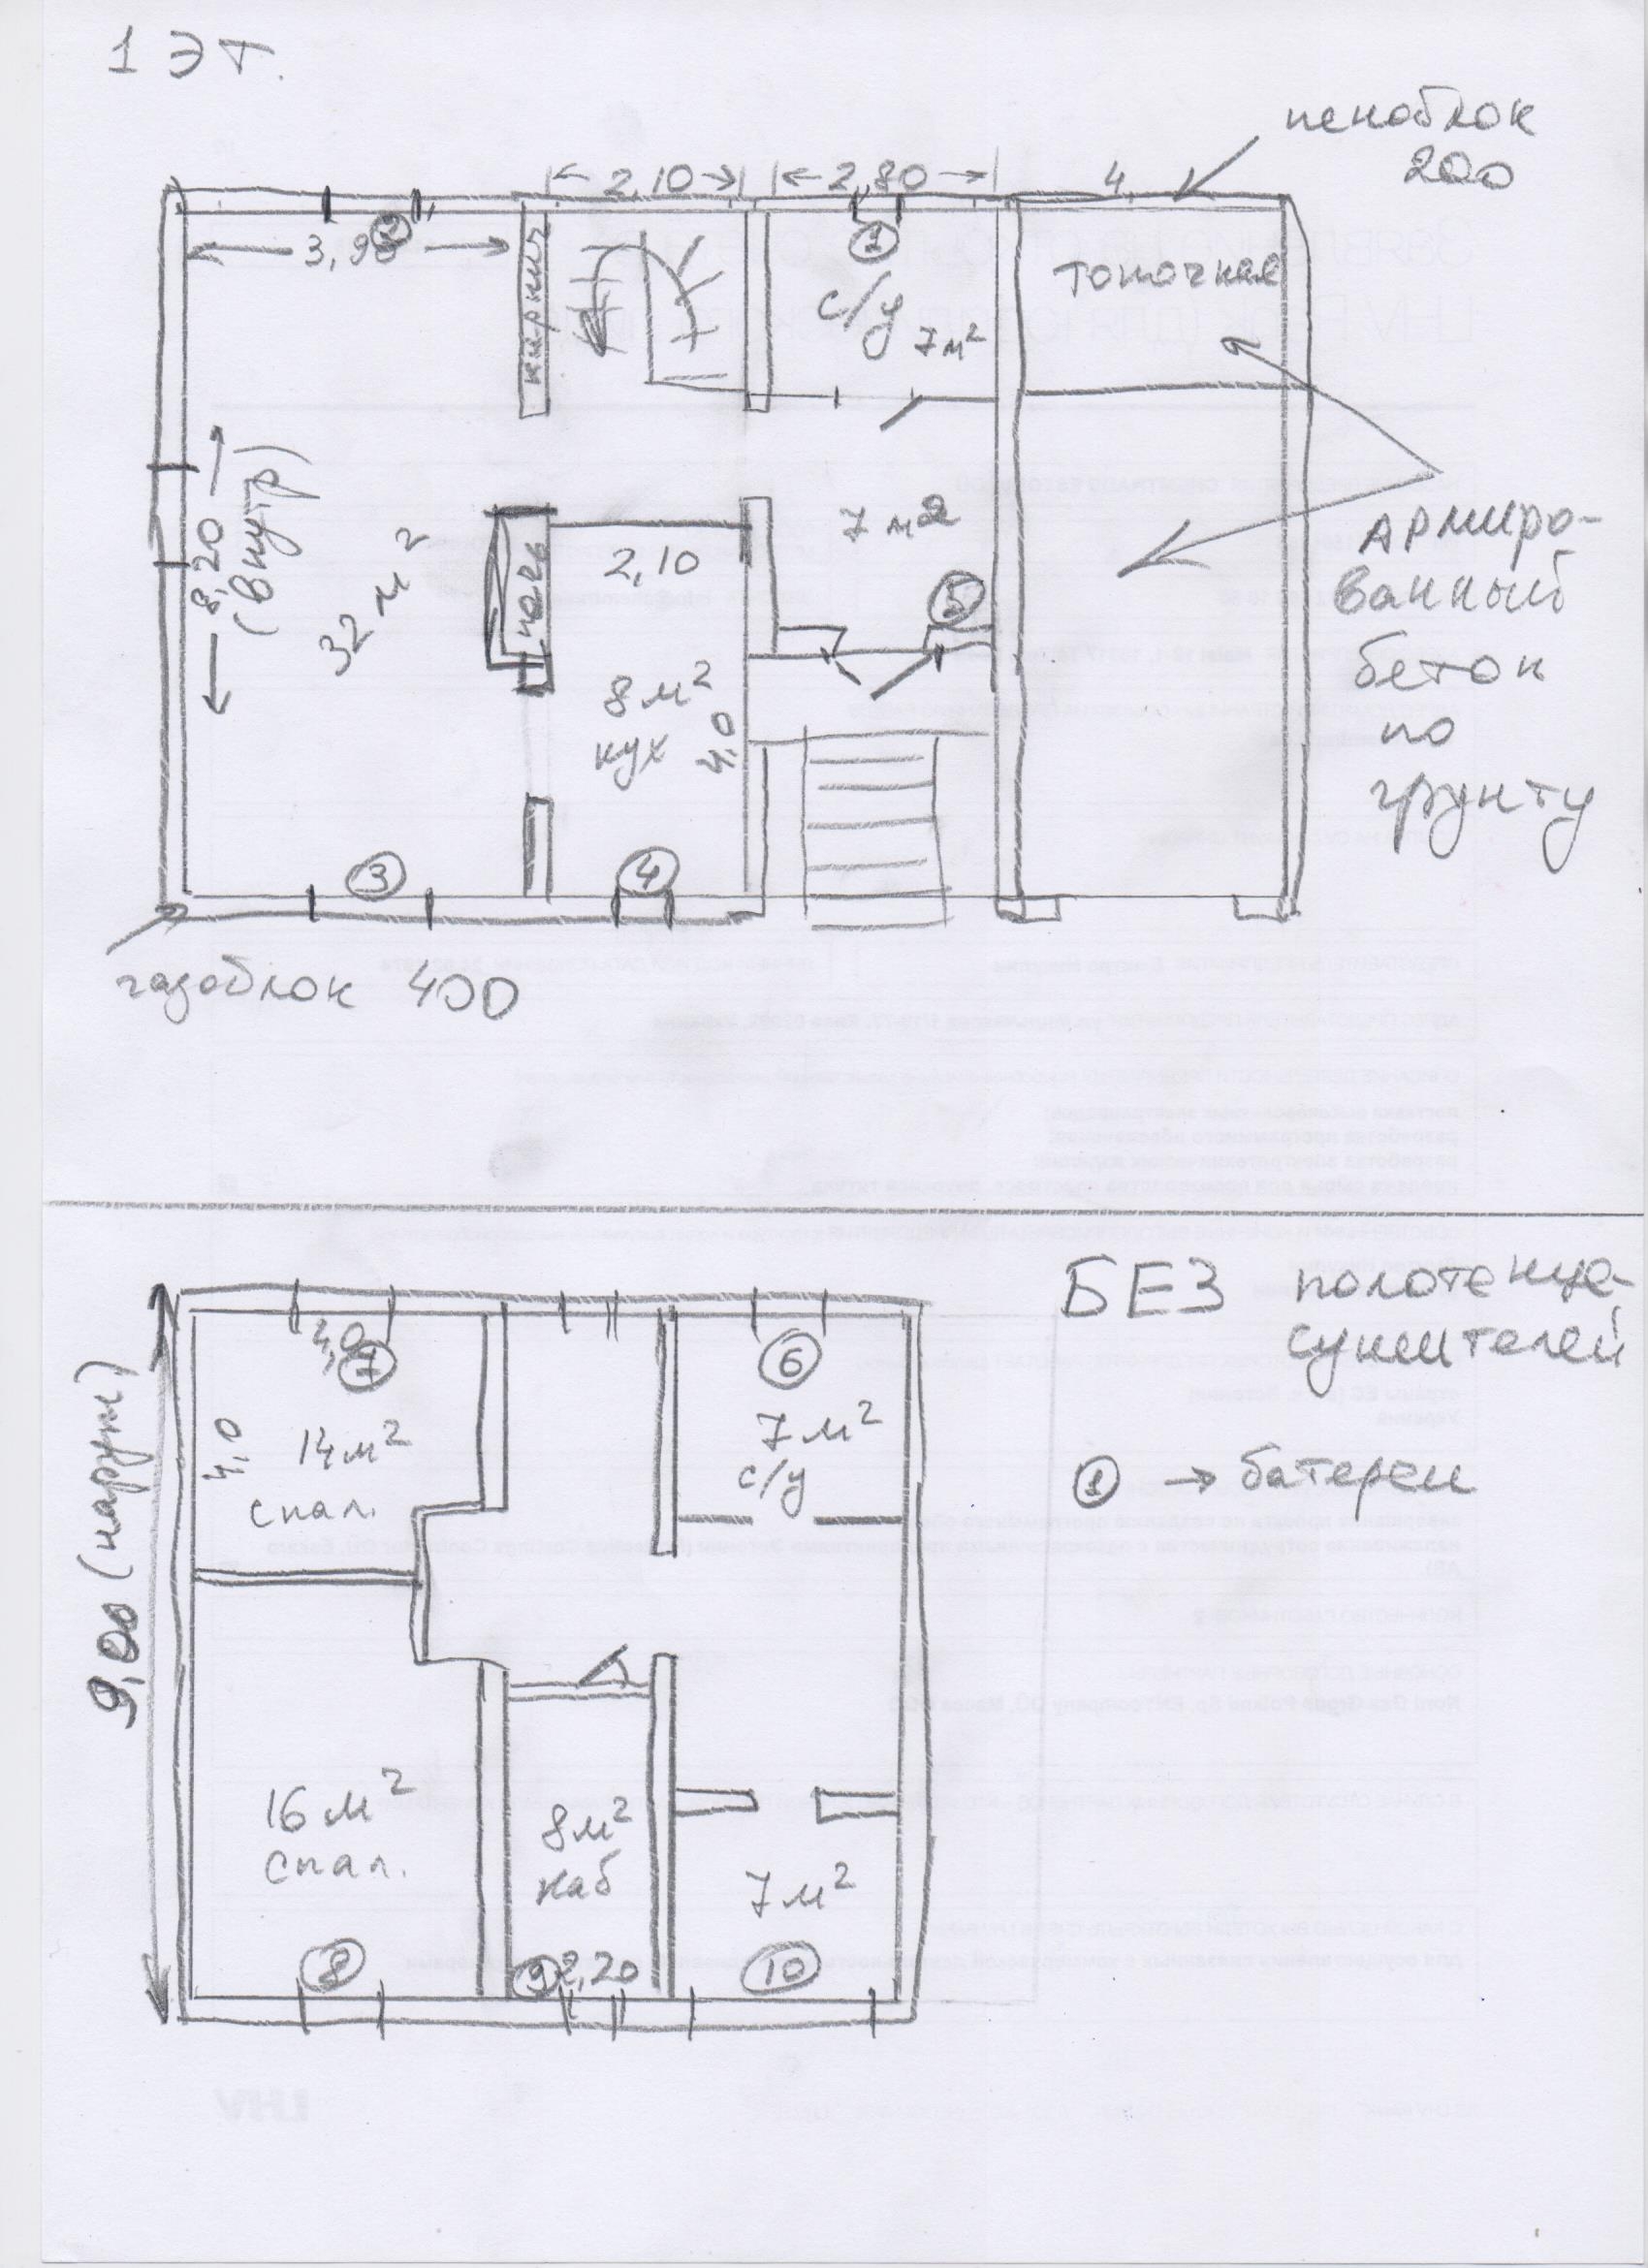 1 ЭТ.
пеноблок
200
2,10
2,80
4
2
3,98
кирпич
1
с/у
7м²
топочная
8,20
(внутр)
32 м²
печь
2,10
7 м²
5
8 м²
кух
4,0
Армиро-
ванный
бетон
по
грунту
3
4
газоблок 400
БЕЗ полотенце-
сушителей
① → батареи
9,00 (наруж)
4,0
7
4,0
14м²
спал.
6
7м²
с/у
16 м²
спал.
8м²
каб
7м²
8
9
2,20
10